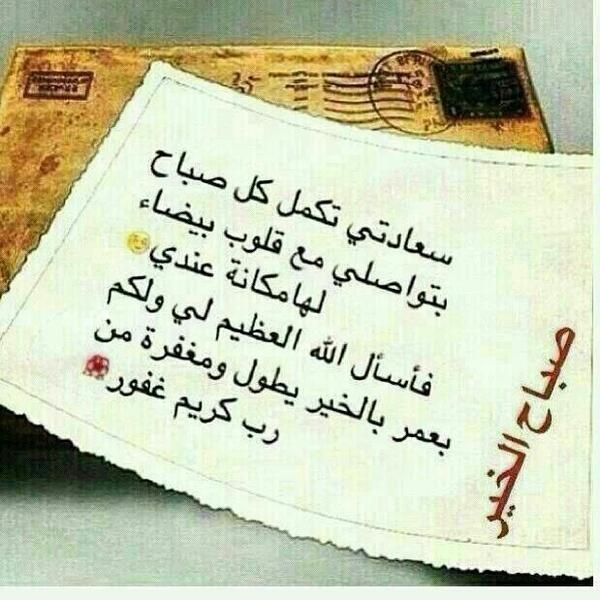 سعادتي تكمل كل صباح
بتواصلي مع قلوب بيضاء
لهامكانة عندي
فأسأل الله العظيم لي ولكم
بعمر بالخير يطول ومغفرة من
رب كريم غفور
صباح الخير